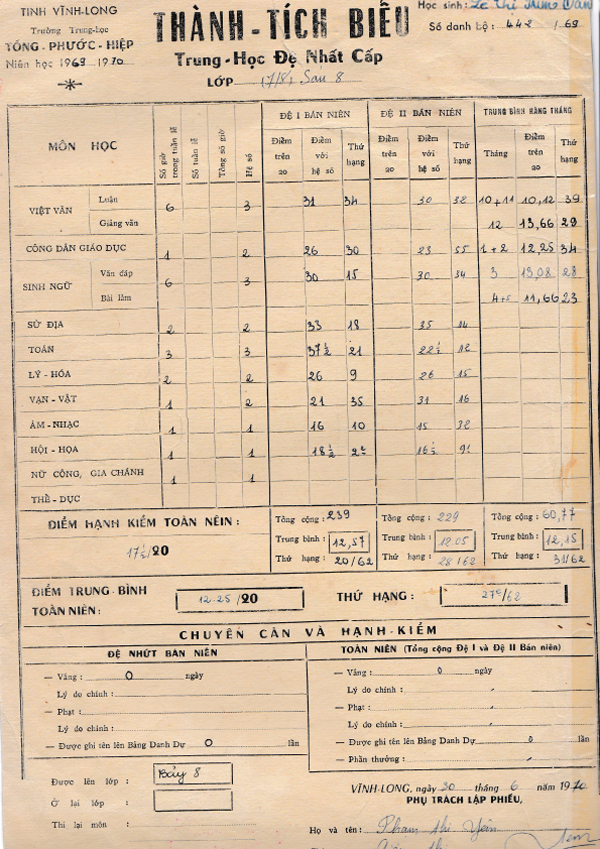 TỈNH VĨNH-LONG
Trường Trung-học
TỔNG-PHƯỚC-HIỆP
Niên học 1969 1970
THÀNH-TÍCH BIỂU
Trung-Học Đệ Nhất Cấp
LỚP Sáu 8
Học sinh: Lê Thị
Số danh bộ: 442 /69
MÔN HỌC
Số giờ trong tuần lễ
Số tuần lễ
Tổng số giờ
Hệ số
ĐỆ I BÁN NIÊN
Điểm trên 20
Điểm với hệ số
Thứ hạng
ĐỆ II BÁN NIÊN
Điểm trên 20
Điểm với hệ số
Thứ hạng
TRUNG BÌNH HÀNG THÁNG
Tháng
Điểm trên 20
Thứ hạng
VIỆT VĂN
Luận 6 3 31 34 30 32 10+11 10,12 39
Giảng văn 12 13,66 29
CÔNG DÂN GIÁO DỤC 1 2 26 30 23 55 1+2 12,25 34
SINH NGỮ
Vấn đáp 6 3 30 15 30 34 3 13,08 28
Bài làm 4+5 11,66 23
SỬ ĐỊA 2 2 33 18 35 14
TOÁN 3 3 37½ 21 22½ 12
LÝ-HÓA 2 2 26 9 26 15
VẠN-VẬT 1 2 21 35 31 16
ÂM-NHẠC 1 1 16 10 15 32
HỘI-HỌA 1 1 18½ 16½
NỮ CÔNG, GIA CHÁNH 1 1
THỂ-DỤC
ĐIỂM HẠNH KIỂM TOÀN NÊIN:
17½/20
Tổng cộng: 239
Trung bình: 12,57
Thứ hạng: 20/62
Tổng cộng: 229
Trung bình: 12.05
Thứ hạng: 28/62
Tổng cộng: 60,77
Trung bình: 12,15
Thứ hạng: 31/62
ĐIỂM TRUNG-BÌNH
TOÀN NIÊN:
12.25/20
THỨ HẠNG:
27e/62
CHUYÊN CẦN VÀ HẠNH-KIỂM
ĐỆ NHỨT BÁN NIÊN
— Vắng: 0 ngày
Lý do chính:
— Phạt:
Lý do chính:
— Được ghi tên lên Bảng Danh Dự 0 lần
TOÀN NIÊN (Tổng cộng Đệ I và Đệ II Bán niên)
— Vắng: 0 ngày
Lý do chính:
— Phạt:
Lý do chính:
— Được ghi tên lên Bảng Danh Dự: 0 lần
— Phần thưởng:
Được lên lớp: Bảy 8
Ở lại lớp:
Thi lại môn:
VĨNH-LONG, ngày 30 tháng 6 năm 1970
PHỤ TRÁCH LẬP PHIẾU,
Họ và tên: Phạm thị Yến